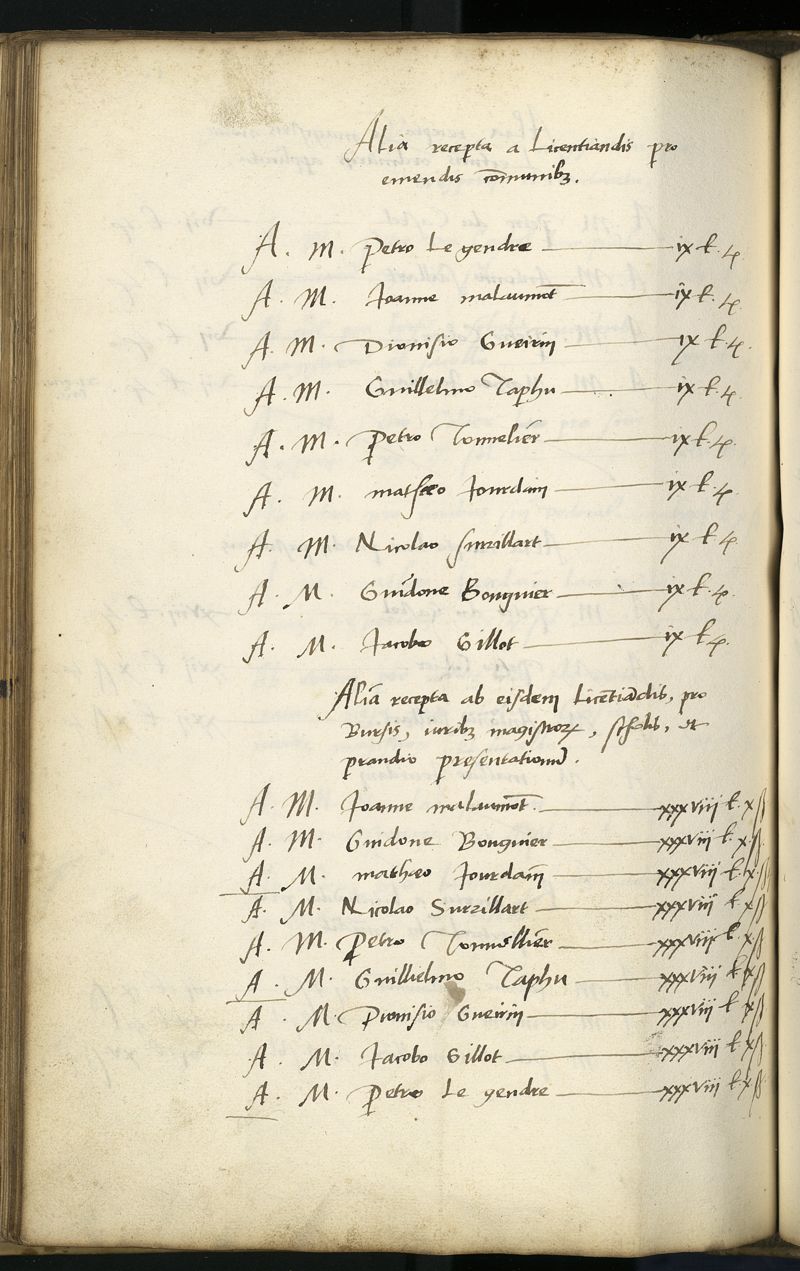 Alia recepta a Licentiandis pro
emendis cōmunibꝫ.
A. M. Petro Le gendre — ix l. p.
A. M. Joanne malaumōt — ix l. p.
A. M. Dionisio Gueirin — ix l. p.
A. M. Guillelmo Taphu — ix l. p.
A. M. Petro Tonneliēr — ix l. p.
A. M. matheo Jourdain — ix l. p.
A. M. Nicolao Surzillart — ix l. p.
A. M. Guidone Bouguier — ix l. p.
A. M. Jacobo Gillot — ix l. p.
Alia recepta ab eisdem Licētiādis, pro
Bursis, iuribꝫ magistroꝝ, scholis, et
prandio presentationū.
A. M. Joanne malaumōt. — xxxviii l. xß
A. M. Guidone Bouguier — xxxviii l. x.ß.
A. M. matheo Jourdain — xxxviii l. x.ß
A. M. Nicolao Surzillart — xxxviii l. xß
A. M. Petro Tonnelliēr — xxxviii l. xß
A. M. Guillielmo Taphu — xxxviii l. xß
A. M. Dionisio Gueirin — xxxviii l. xß
A. M. Jacobo Gillot — xxxviii l. xß
A. M. Petro Le gendre — xxxviii l. xß